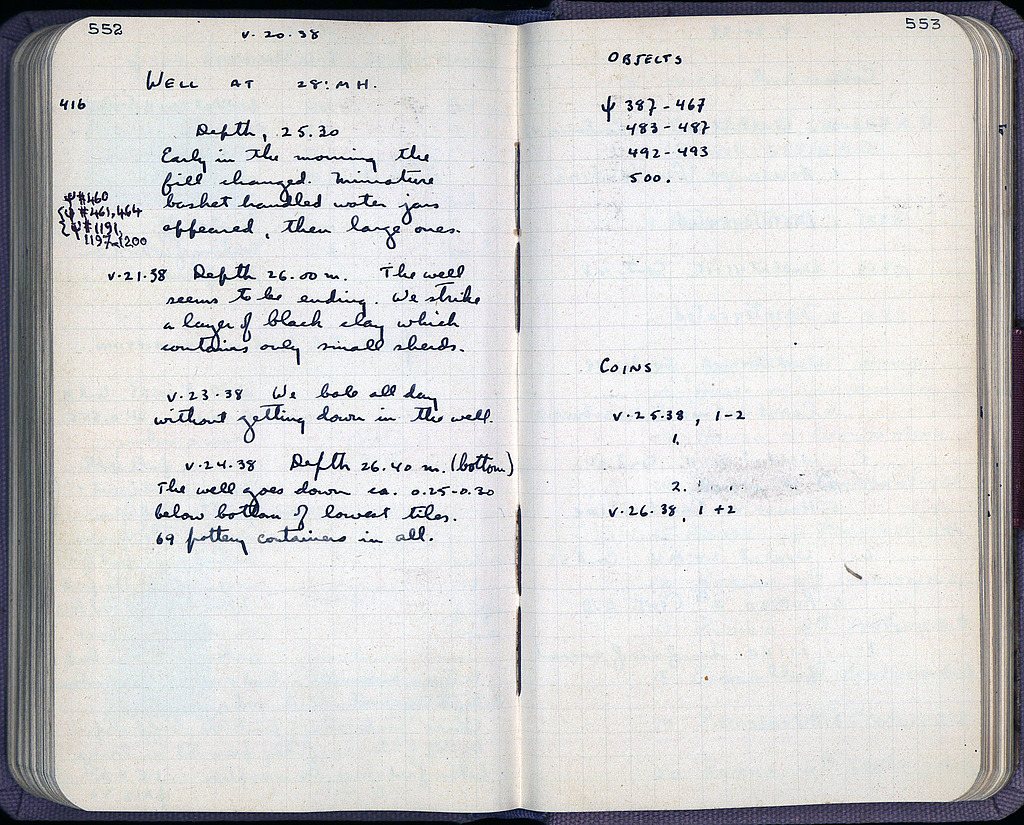 552
V·20·38
WELL AT 28:MH.
416
Depth, 25.30
Early in the morning the
fill changed. Miniature
basket handled water jars
appeared, then large ones.
ψ #460
{ψ #461,464
{ψ #1191,
1197-1200
V·21·38 Depth 26.00 m. The well
seems to be ending. We strike
a layer of black clay which
contains only small sherds.
V·23·38 We bale all day
without getting down in the well.
V·24·38 Depth 26.40 m. (bottom)
The well goes down ca. 0.25-0.30
below bottom of lowest tiles.
69 pottery containers in all.
553
OBJECTS
ψ 387-467
483-487
492-493
500.
COINS
V·25·38, 1-2
1.
2.
V·26·38, 1+2